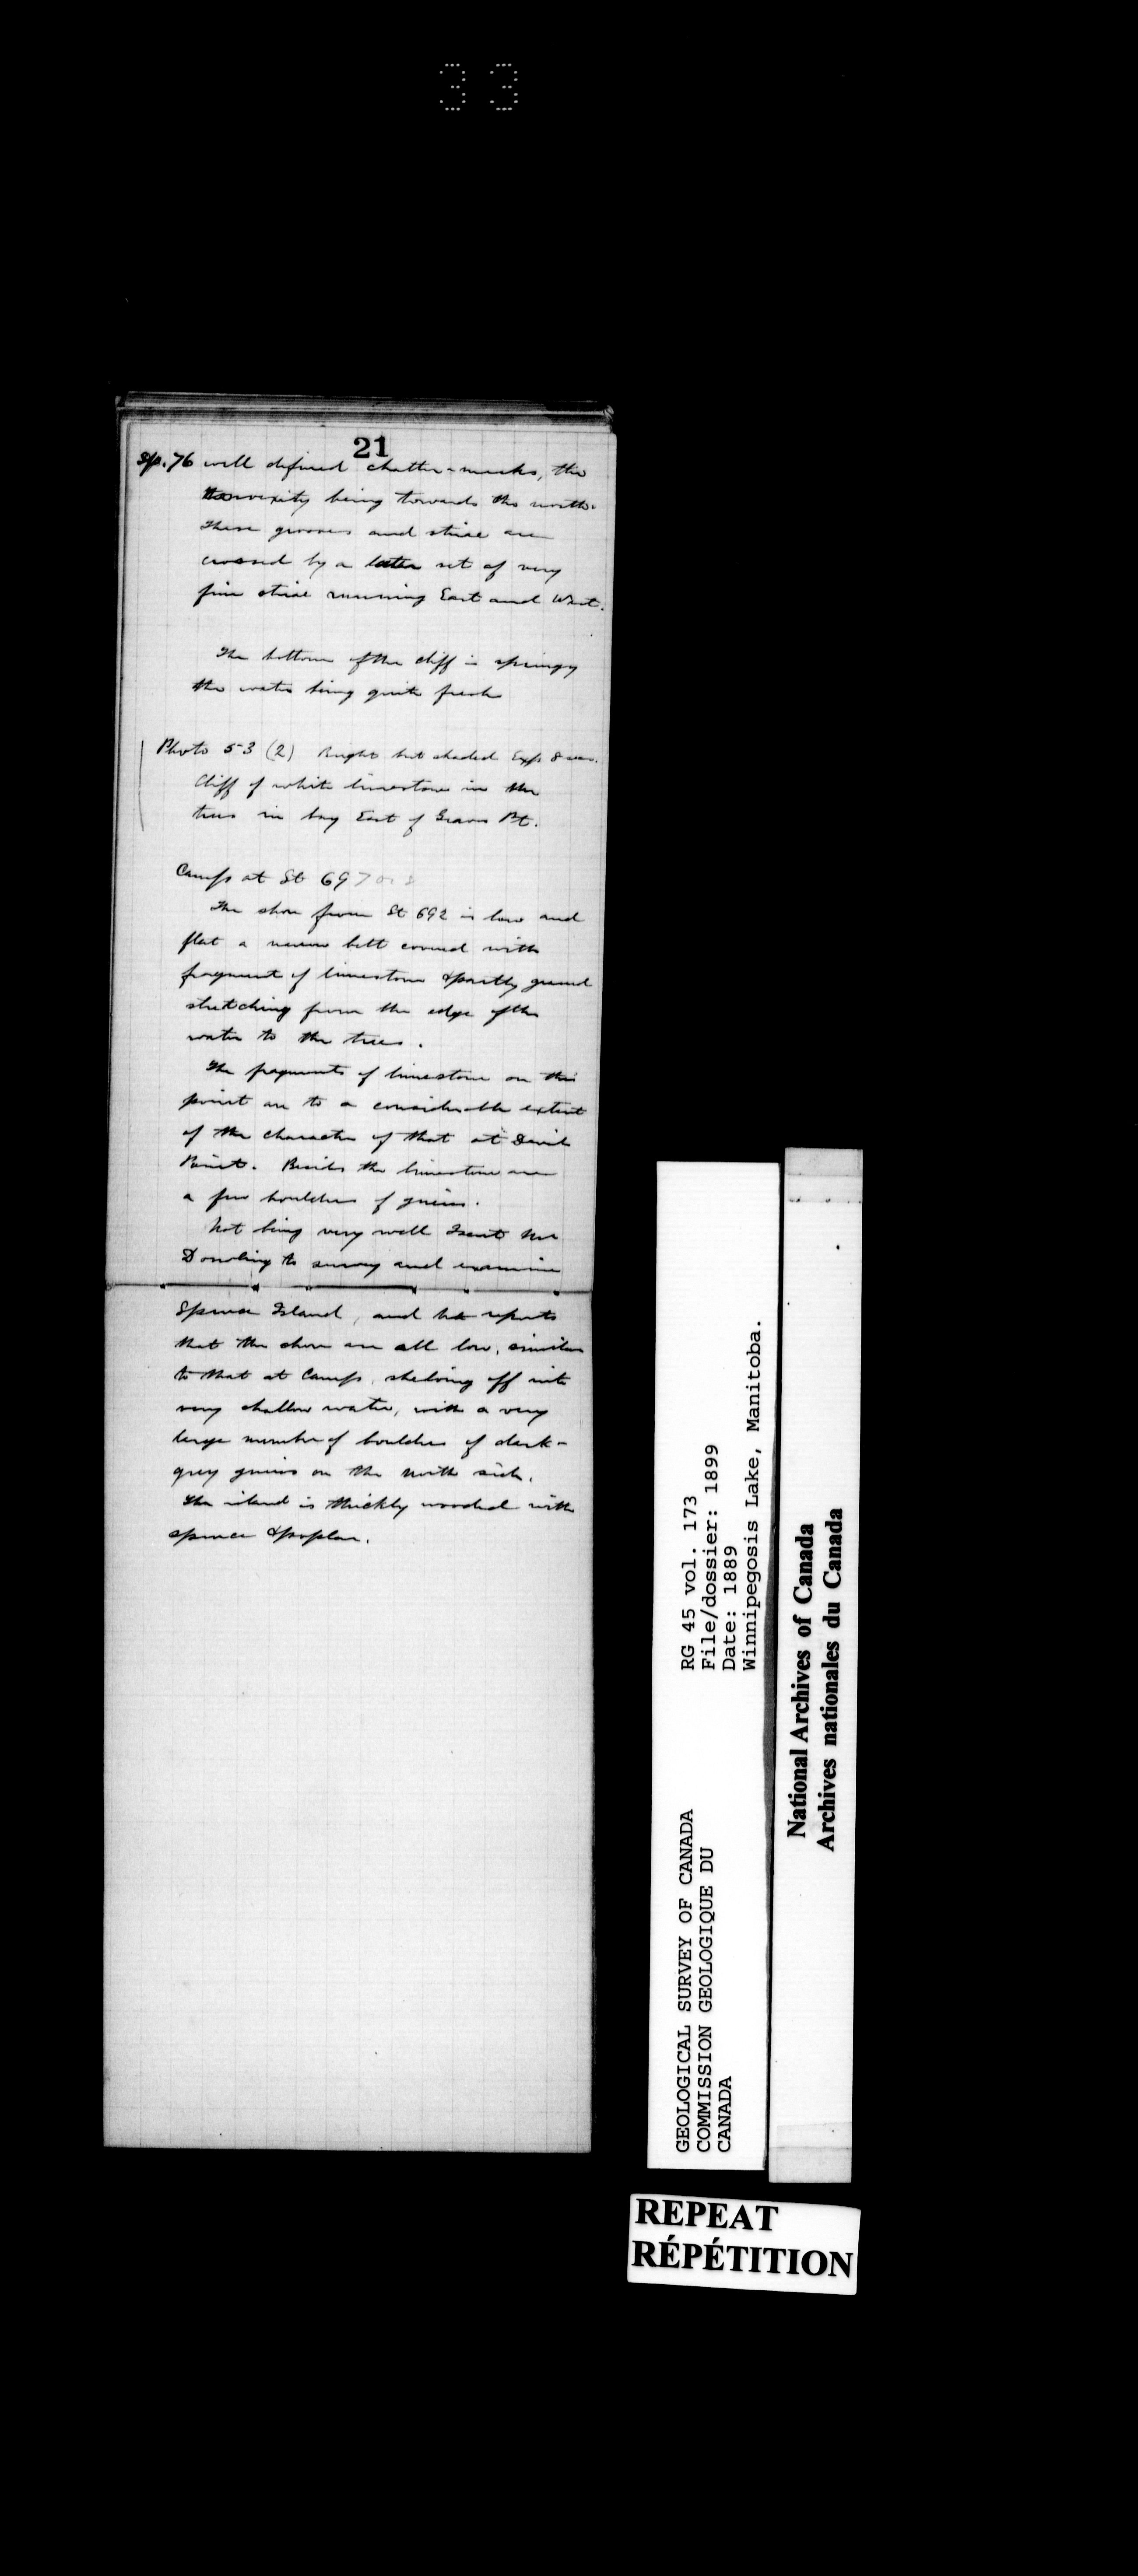 33
21
Sp. 76 well defined chatter-marks, the
convexity being towards the north.
These grooves and striae are
crossed by a later set of very
fine striae running East and West.
The bottom of the cliff is springy
the water being quite fresh
Photo 53 (2) Bright but shaded Exp. 8 sec.
Cliff of white limestone in the
trees in bay East of Graves Pt.
Camp at St 697 or 8
The shore from St 692 is low and
flat a narrow belt covered with
fragment of limestone & partly gravel
stretching from the edge of the
water to the trees.
The fragments of limestone on this
point are to a considerable extent
of the character of that at Devils
Point. Besides the limestone are
a few boulders of gneiss.
Not being very well I sent Mr
Dowling to survey and examine
Spruce Island, and he reports
that the shore are all low, similar
to that at Camp, shelving off into
very shallow water, with a very
large number of boulders of dark-
grey gneiss on the north side.
The island is thickly wooded with
spruce & poplar.
GEOLOGICAL SURVEY OF CANADA
COMMISSION GEOLOGIQUE DU
CANADA
RG 45 vol. 173
File/dossier: 1899
Date: 1889
Winnipegosis Lake, Manitoba.
National Archives of Canada
Archives nationales du Canada
REPEAT
RÉPÉTITION